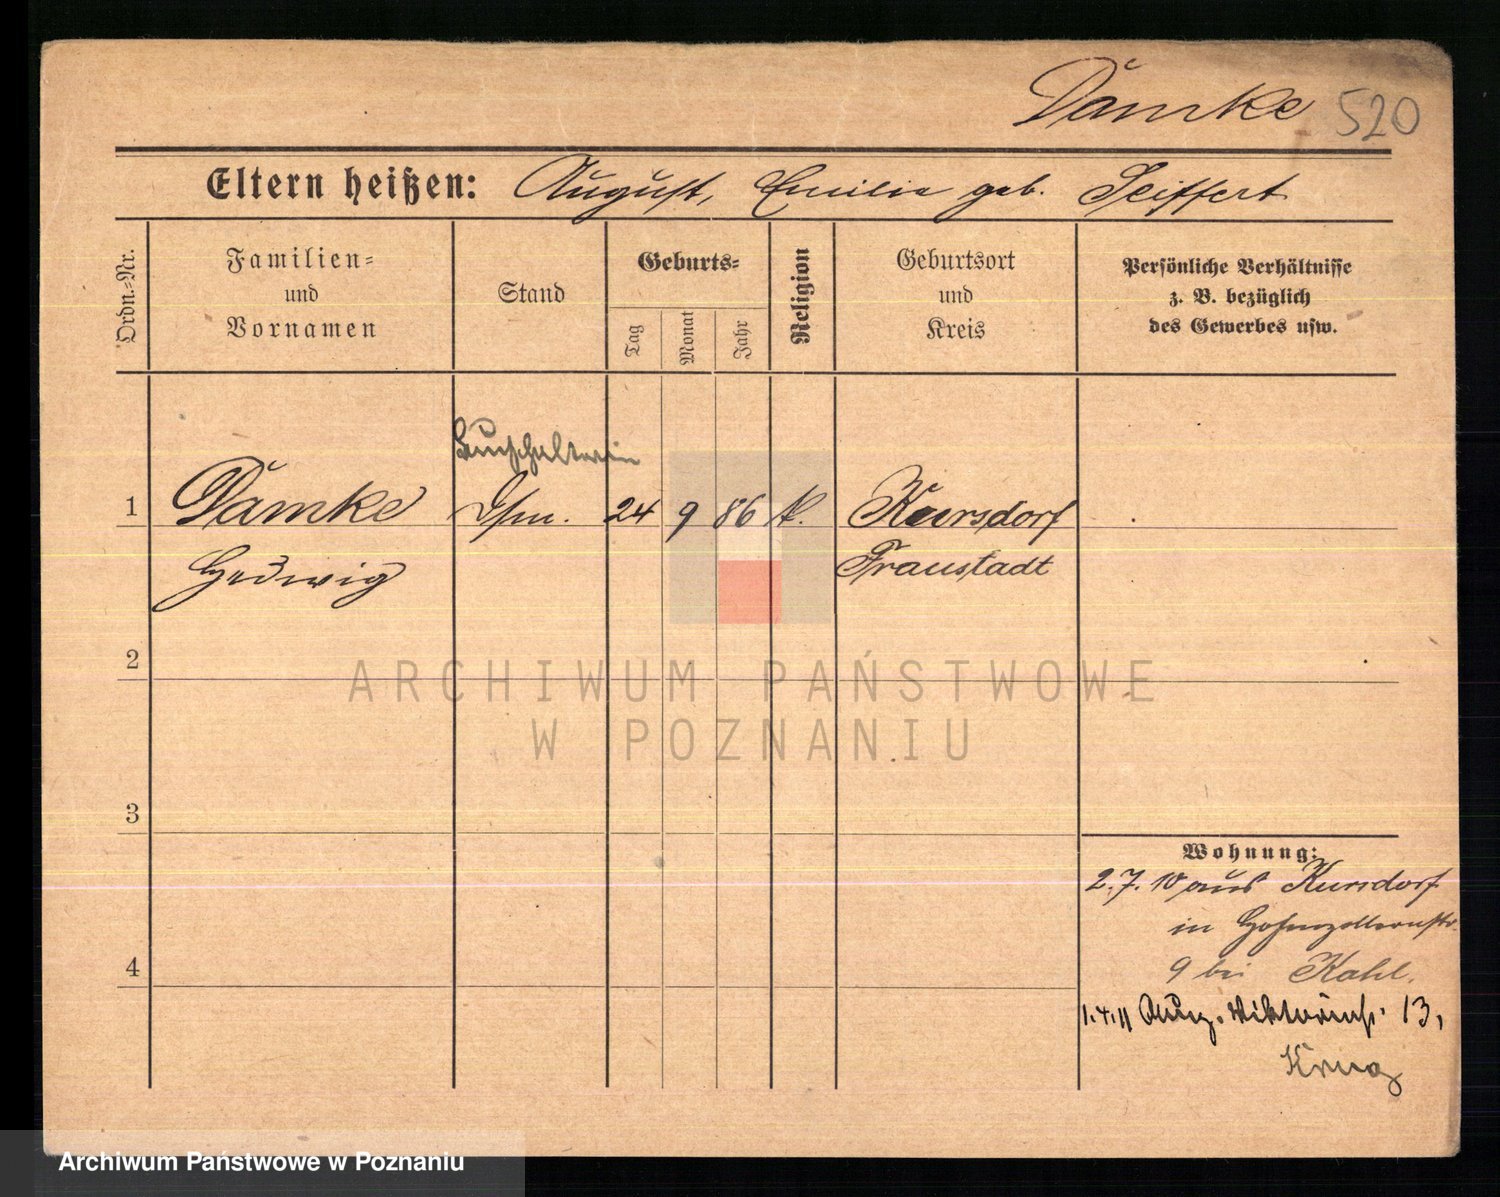 Damke 520
Eltern heißen: August, Emilie geb. Seiffert
Ordn.-Nr.
Familien-
und
Vornamen
Stand
Geburts-
Tag
Monat
Jahr
Religion
Geburtsort
und
Kreis
Persönliche Verhältnisse
z. B. bezüglich
des Gewerbes usw.
Buchhalterin
1 Damke 24 9 86 k. Kursdorf
Hedwig Fraustadt
2
ARCHIWUM PAŃSTWOWE
W POZNANIU
3
Wohnung:
2.7.10 aus Kursdorf
in Hohenzollernstr.
9 bei Kahl.
4
1.4.11 Aug. Viktoriastr. 13,
Krug
Archiwum Państwowe w Poznaniu